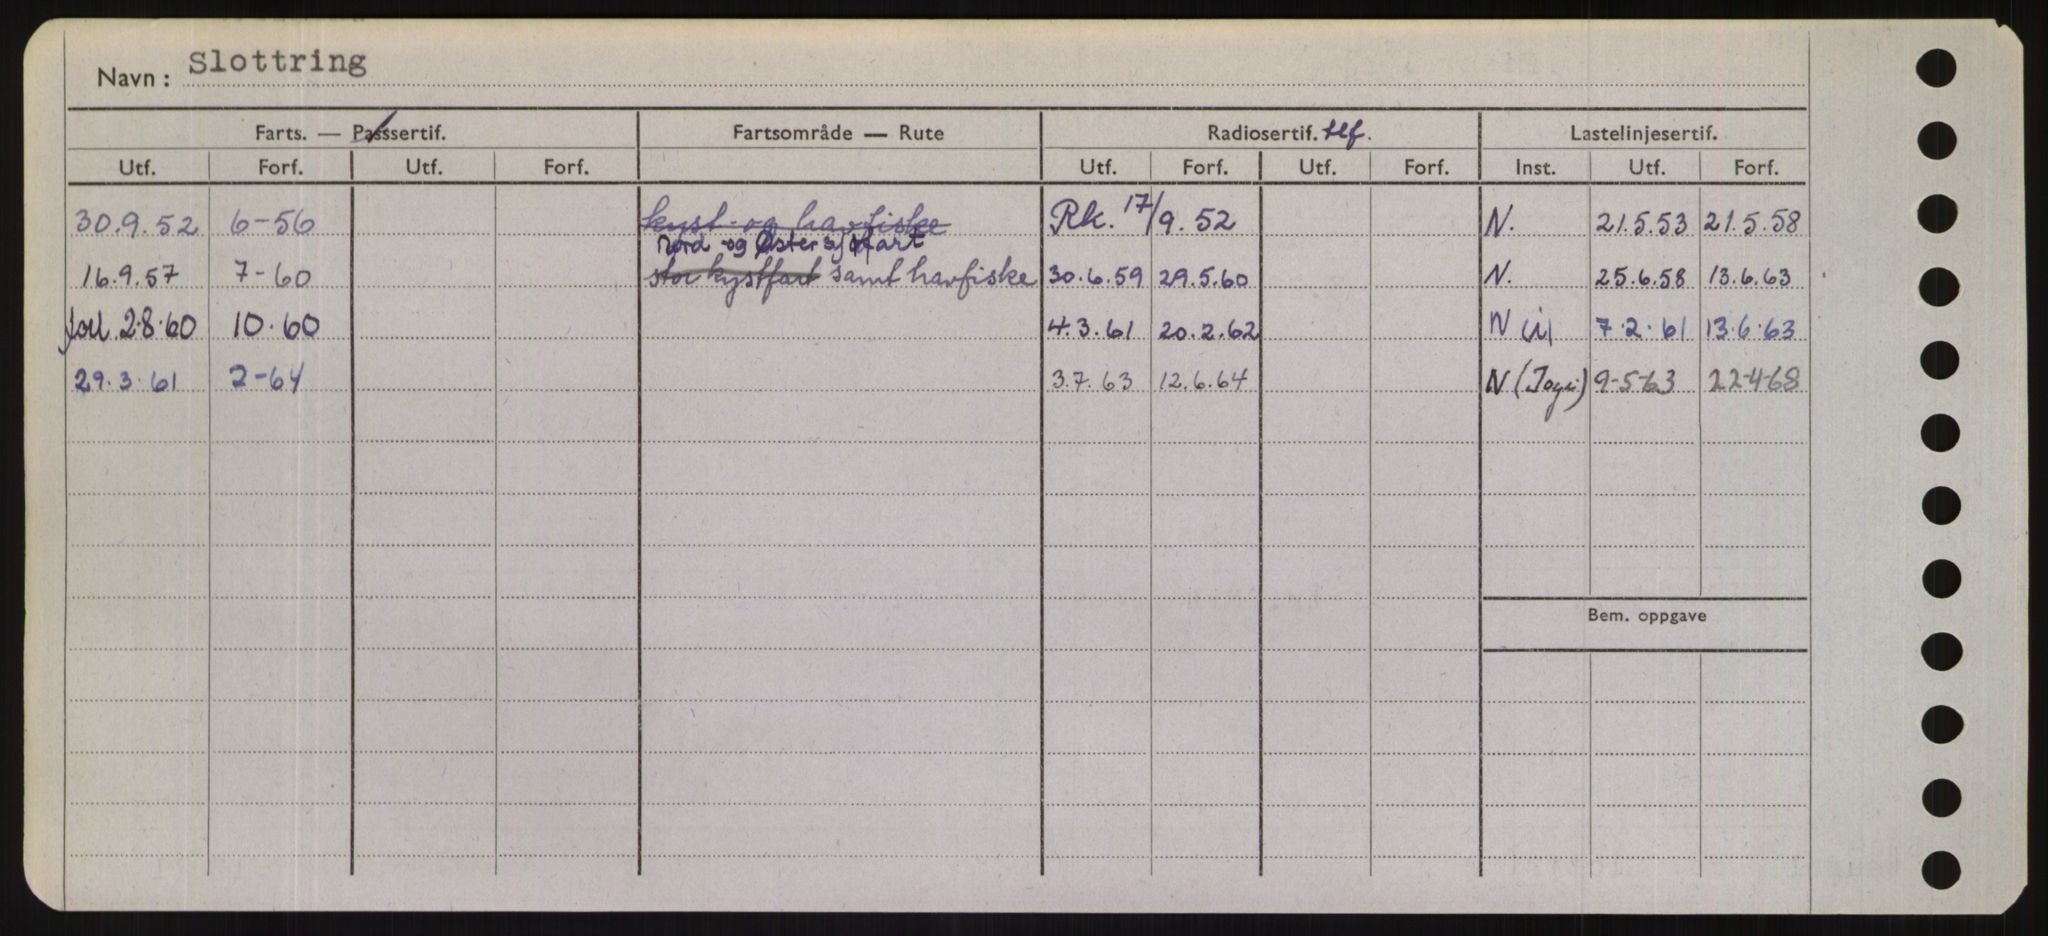 Navn: Slottring
Farts. — Passsertif. Fartsområde — Rute Radiosertif. tlf. Lastelinjesertif.
Utf. Forf. Utf. Forf. Utf. Forf. Utf. Forf. Inst. Utf. Forf.
30.9.52 6-56 kyst- og havfiske Rk. 17/9.52 N. 21.5.53 21.5.58
Nord og Østersjøfart
16.9.57 7-60 stor kystfart samt havfiske 30.6.59 29.5.60 N. 25.6.58 13.6.63
2.8.60 10.60 4.3.61 20.2.62 N 7.2.61 13.6.63
29.3.61 2-64 3.7.63 12.6.64 N 9-5-63 22-4-68
Bem. oppgave